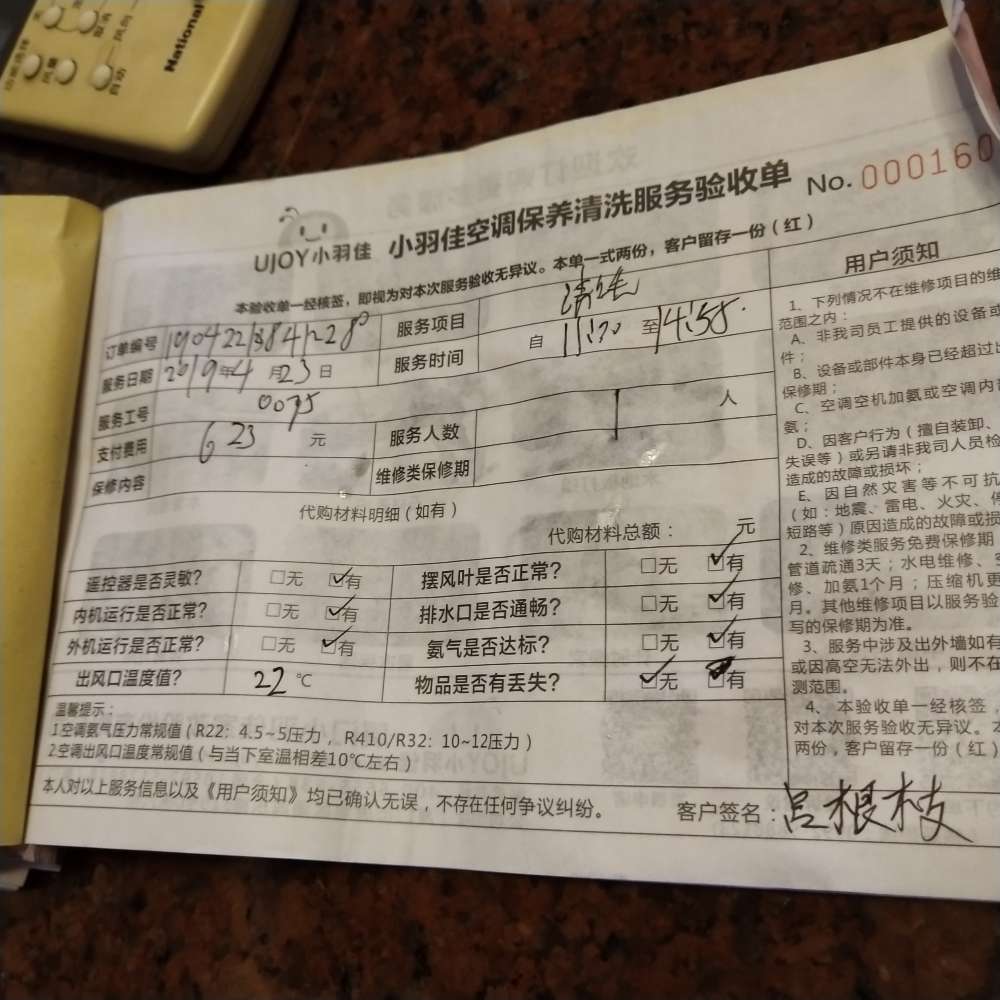 National
风量
自动
UJOY小羽佳 小羽佳空调保养清洗服务验收单 No. 000160
本验收单一经核签，即视为对本次服务验收无异议。本单一式两份，客户留存一份（红）
订单编号
服务项目 清洗
服务日期 2019年4月23日
服务时间 自 至14:58
服务工号 0075
支付费用 623元
服务人数 1人
保修内容
维修类保修期
代购材料明细（如有）
代购材料总额： 元
遥控器是否灵敏？ □无 ☑有 摆风叶是否正常？ □无 ☑有
内机运行是否正常？ □无 ☑有 排水口是否通畅？ □无 ☑有
外机运行是否正常？ □无 ☑有 氨气是否达标？ □无 ☑有
出风口温度值？ 22 ℃ 物品是否有丢失？ ☑无 有
温馨提示：
1.空调氨气压力常规值（R22：4.5~5压力，R410/R32：10~12压力）
2.空调出风口温度常规值（与当下室温相差10℃左右）
本人对以上服务信息以及《用户须知》均已确认无误，不存在任何争议纠纷。
客户签名：吕根枝
用户须知
1、下列情况不在维修项目的维
范围之内：
A、非我司员工提供的设备或
件；
B、设备或部件本身已经超过出
保修期；
C、空调空机加氨或空调内部
氨；
D、因客户行为（擅自装卸、
失误等）或另请非我司人员检
造成的故障或损坏；
E、因自然灾害等不可抗
（如：地震、雷电、火灾、停
短路等）原因造成的故障或损
2、维修类服务免费保修期
管道疏通3天；水电维修、空
修、加氨1个月；压缩机更
月。其他维修项目以服务验
写的保修期为准。
3、服务中涉及出外墙如有
或因高空无法外出，则不在
测范围。
4、本验收单一经核签，
对本次服务验收无异议。本
两份，客户留存一份（红）